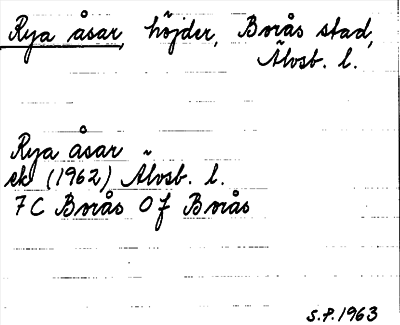 Rya åsar, höjder, Borås stad,
Älvsb. l.
Rya åsar
ek (1962) Älvsb. l.
7 C Borås 0 f Borås
S.P. 1963